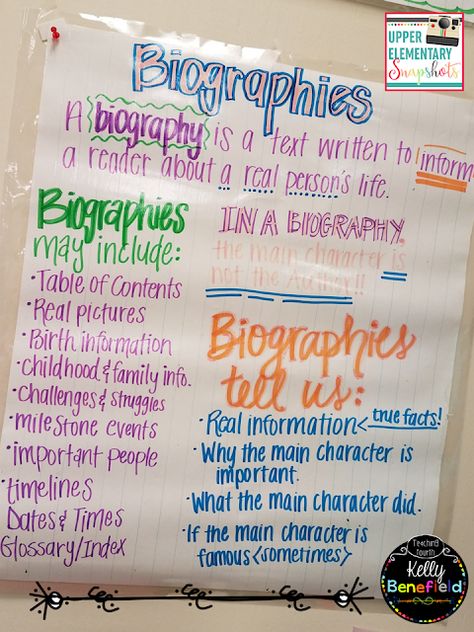 UPPER
ELEMENTARY
Snapshots
Biographies
A biography is a text written to inform
a reader about a real person's life.
Biographies
may include:
• Table of Contents
• Real pictures
• Birth information
• childhood & family info.
• Challenges & struggles
• milestone events
• important people
• timelines
Dates & Times
Glossary/Index
IN A BIOGRAPHY,
the main character is
not the Author!!
Biographies
tell us:
• Real information < true facts!
• Why the main character is
important.
• What the main character did.
• If the main character is
famous <sometimes>
Teaching
Fourth
Kelly
Benefield